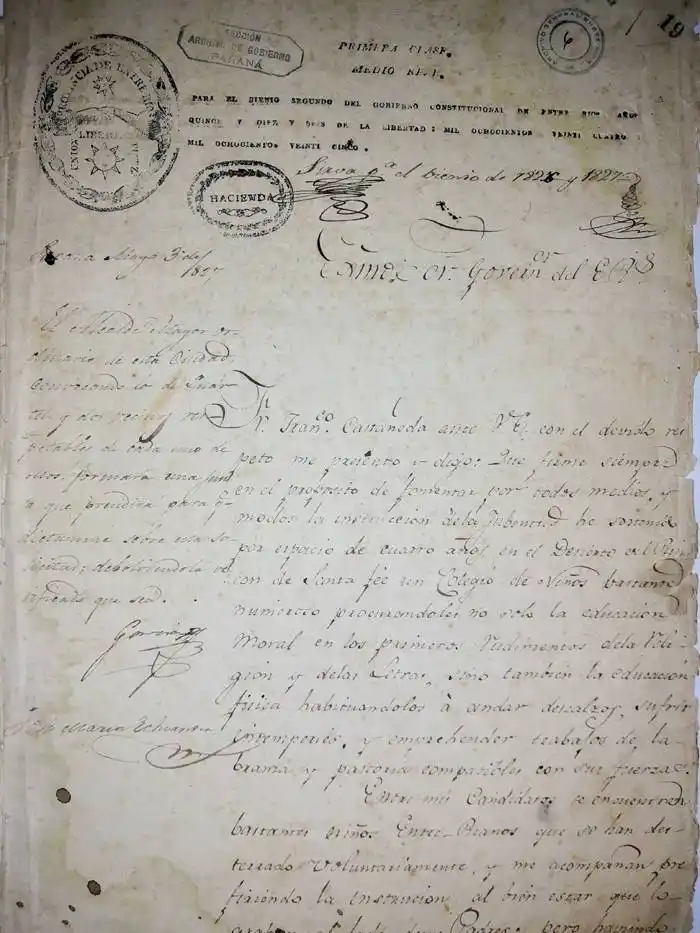 SECCIÓN
ARCHIVO DE GOBIERNO
PARANÁ
6
19
PROVINCIA DE ENTRE RIOS
UNION LIBERTAD
PRIMERA CLASE.
MEDIO REAL.
PARA EL BIENIO SEGUNDO DEL GOBIERNO CONSTITUCIONAL DE ENTRE RIOS AÑOS
QUINCE Y DIEZ Y SEIS DE LA LIBERTAD: MIL OCHOCIENTOS VEINTI CUATRO
MIL OCHOCIENTOS VEINTI CINCO.
HACIENDA
Sirva pa. el bienio de 1826 y 1827
Mayo 3 de
1827
Exmo. Sor. Goven.or del E. Rs.
El Alcalde Mayor or-
dinario de esta Ciudad
convocando los de Quar-
tel y dos vecinos res-
petables de cada uno de
ellos, formará una jun-
ta que precidirá para q.
dictamine sobre esta so-
licitud; debolviendola ve-
rificado que sea.
Garcia
Maria Echandia
Fr. Fran.co Castañeda ante V.E. con el devido res
peto me presento y digo: Que firme siempre
en el proposito de fomentar por todos medios, y
modos la instruccion dela Jubentud he sostenido
por espacio de cuatro años en el Decierto del Rin-
con de Santa fée un Colegio de Niños bastante
numeroso procurandoles no solo la educacion
Moral en los primeros rudimentos dela Reli-
gion y delas Letras, sino también la educacion
fisica habituandolos à andar descalzos, sufrir
intemperies, y emprehender trabajos de la-
branza y pastoria compatibles con sus fuerzas.
Entre mis Candidatos se encuentran
bastantes niños Entre-Rianos que se han des-
terrado voluntariamente, y me acompañan pre-
firiendo la instrucion al bien estar que lo-
graban al lado de sus Padres: pero haviendo